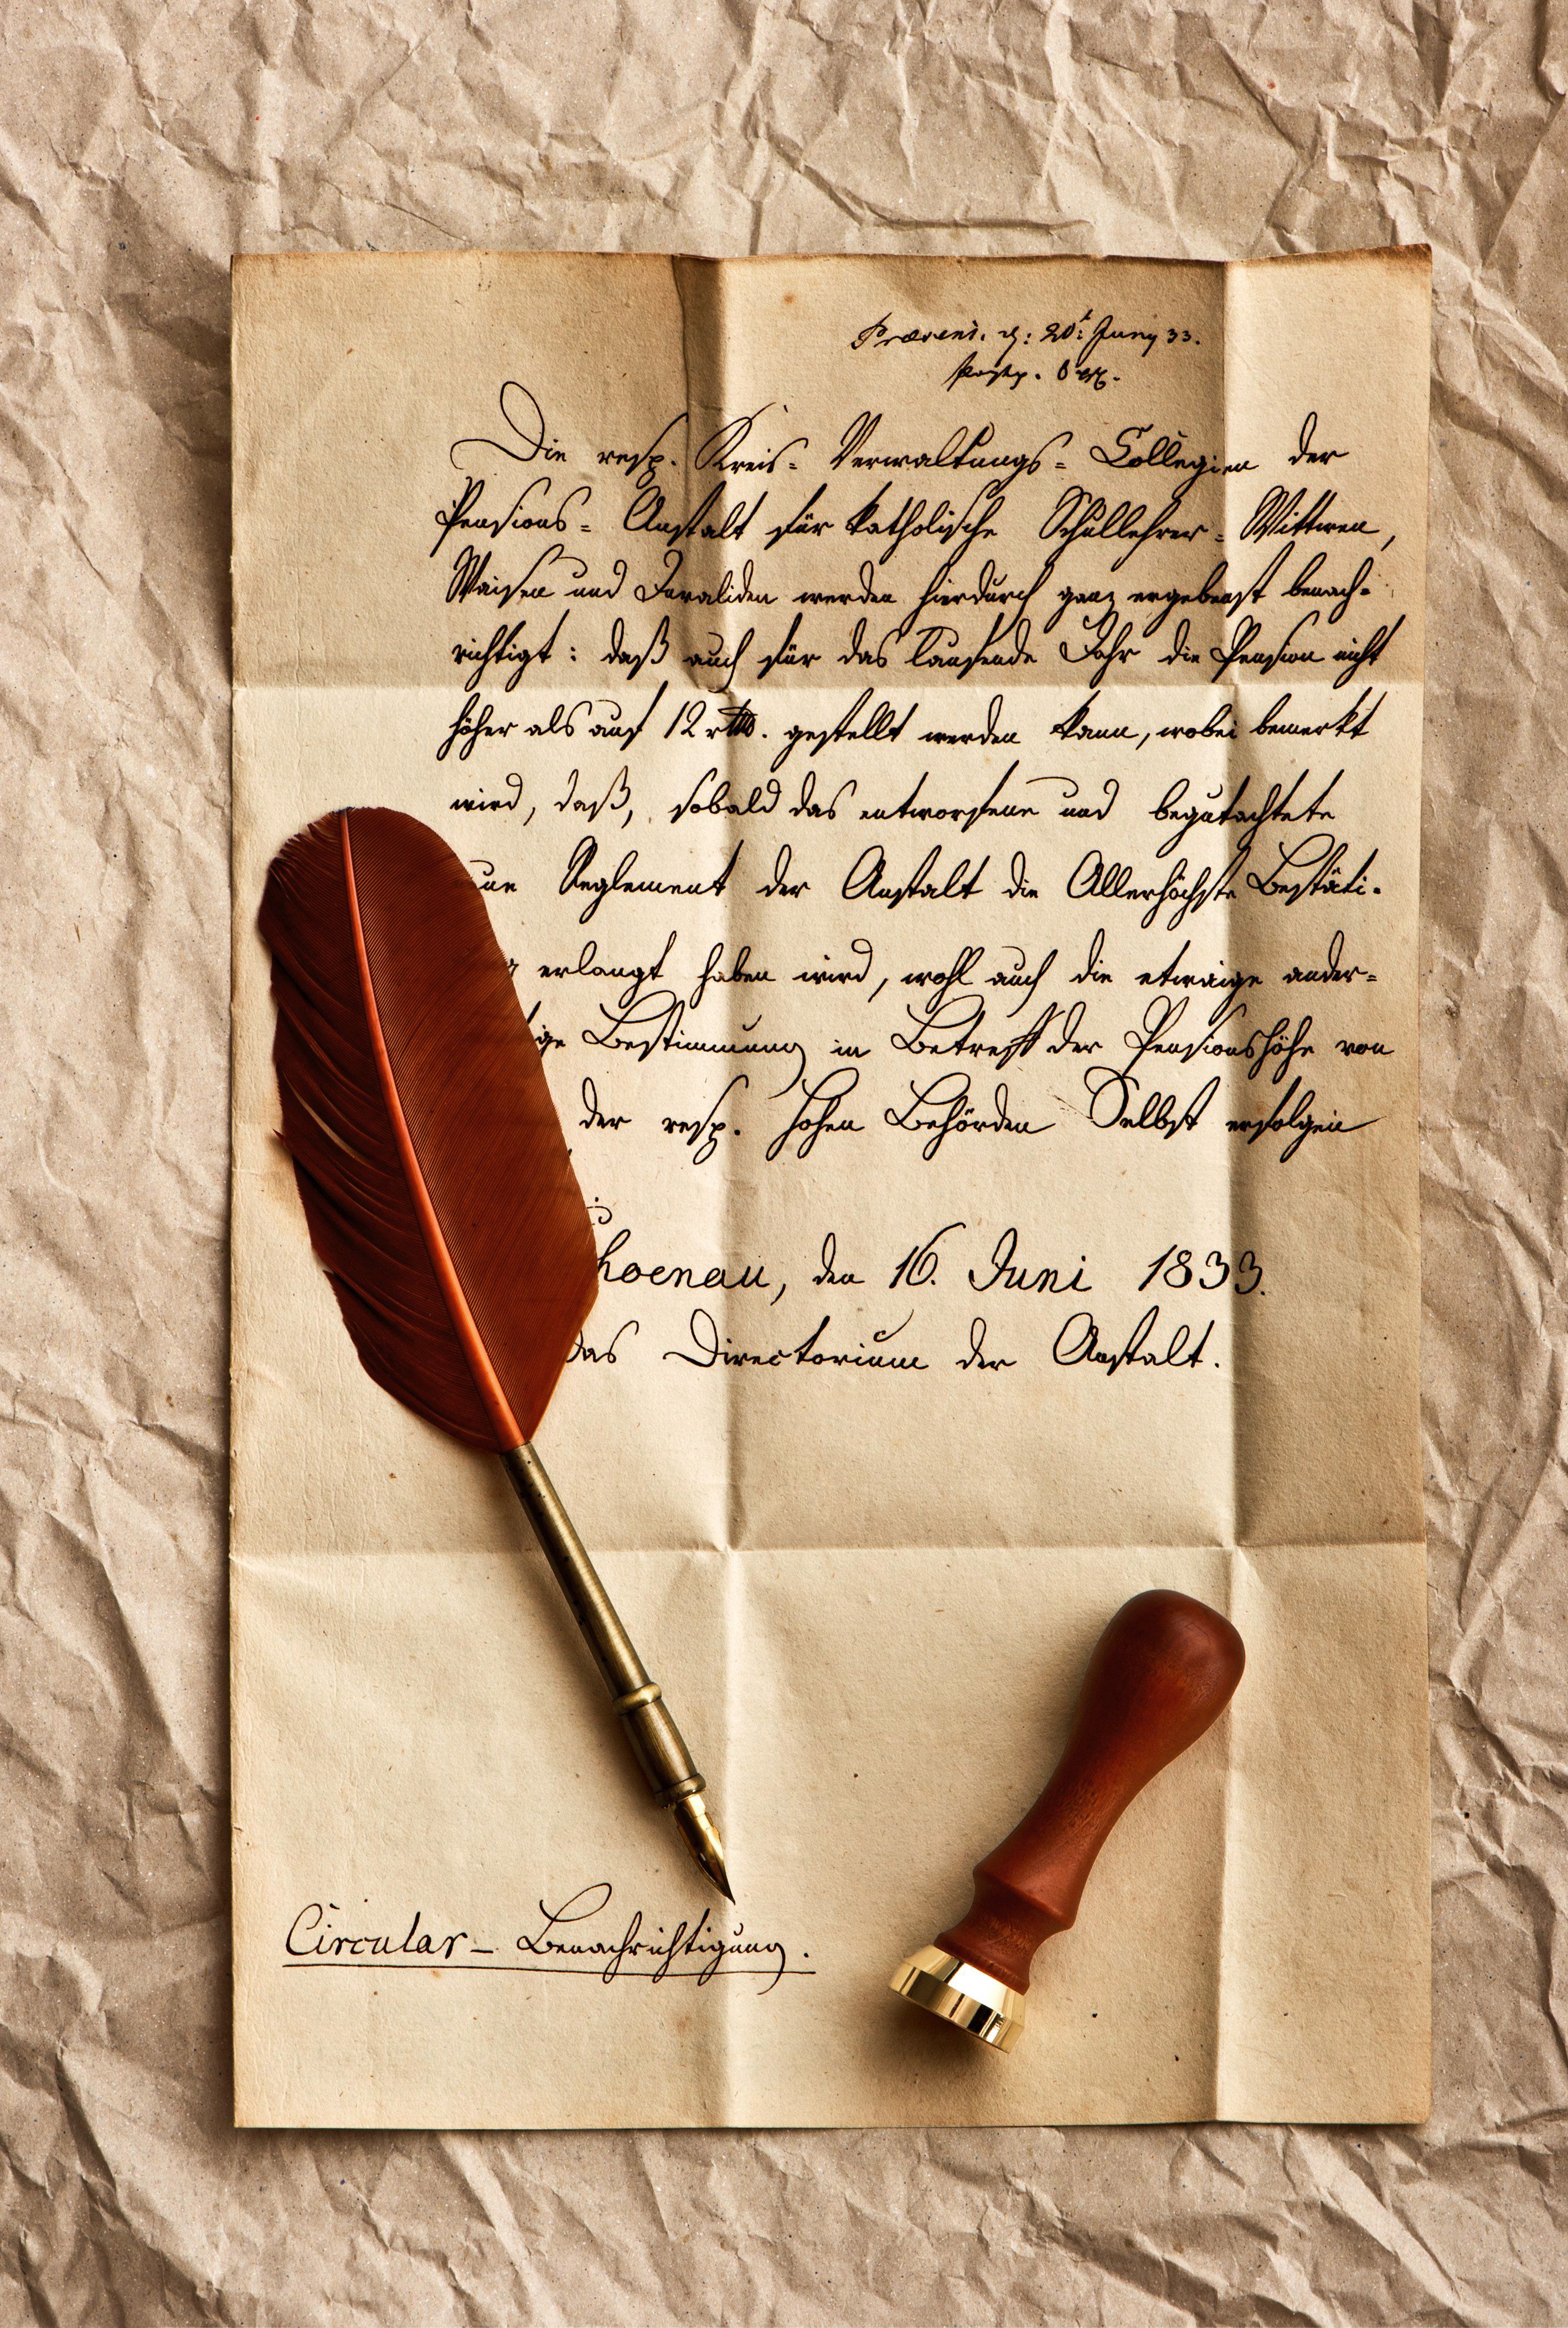 Praesent. d: 20t Juny 33.
Die resp. Kreis= Verwaltungs= Collegien der
Pensions= Anstalt für katholische Schullehrer= Wittwen,
Waisen und Invaliden werden hierdurch ganz ergebenst benach=
richtigt: daß auch für das laufende Jahr die Pension nicht
höher als auf 12 rthlr. gestellt werden kann, wobei bemerkt
wird, daß, sobald das entworfene und begutachtete
Reglement der Anstalt die Allerhöchste Bestäti=
erlangt haben wird, wohl auch die etwaige ander=
ige Bestimmung in Betreff der Pensionshöhe von
der resp. hohen Behörden Selbst erfolgen
hoenau, den 16. Juni 1833.
Das Directorium der Anstalt.
Circular- Benachrichtigung.